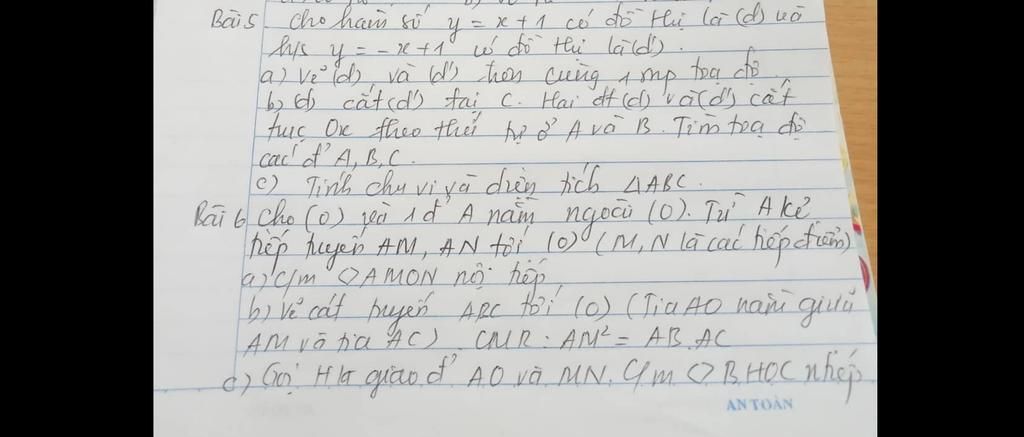 Bài 5 Cho hàm số y = x + 1 có đồ thị là (d) và
h/s y = -x + 1 có đồ thị là (d').
a) Vẽ (d) và (d') trên cùng 1 mp toạ độ
b) (d) cắt (d') tại C. Hai đt (d) và (d') cắt
trục Ox theo thứ tự ở A và B. Tìm toạ độ
các đ' A, B, C.
c) Tính chu vi và diện tích ΔABC.
Bài 6 Cho (O) và 1 đ' A nằm ngoài (O). Từ A kẻ
tiếp tuyến AM, AN tới (O) (M, N là các tiếp điểm)
a) C/m ◇ AMON nội tiếp
b) Vẽ cát tuyến ABC tới (O) (Tia AO nằm giữa
AM và tia AC). CMR: AM² = AB.AC
c) Gọi H là giao đ' AO và MN. C/m ◇ BHOC ntiếp
AN TOÀN